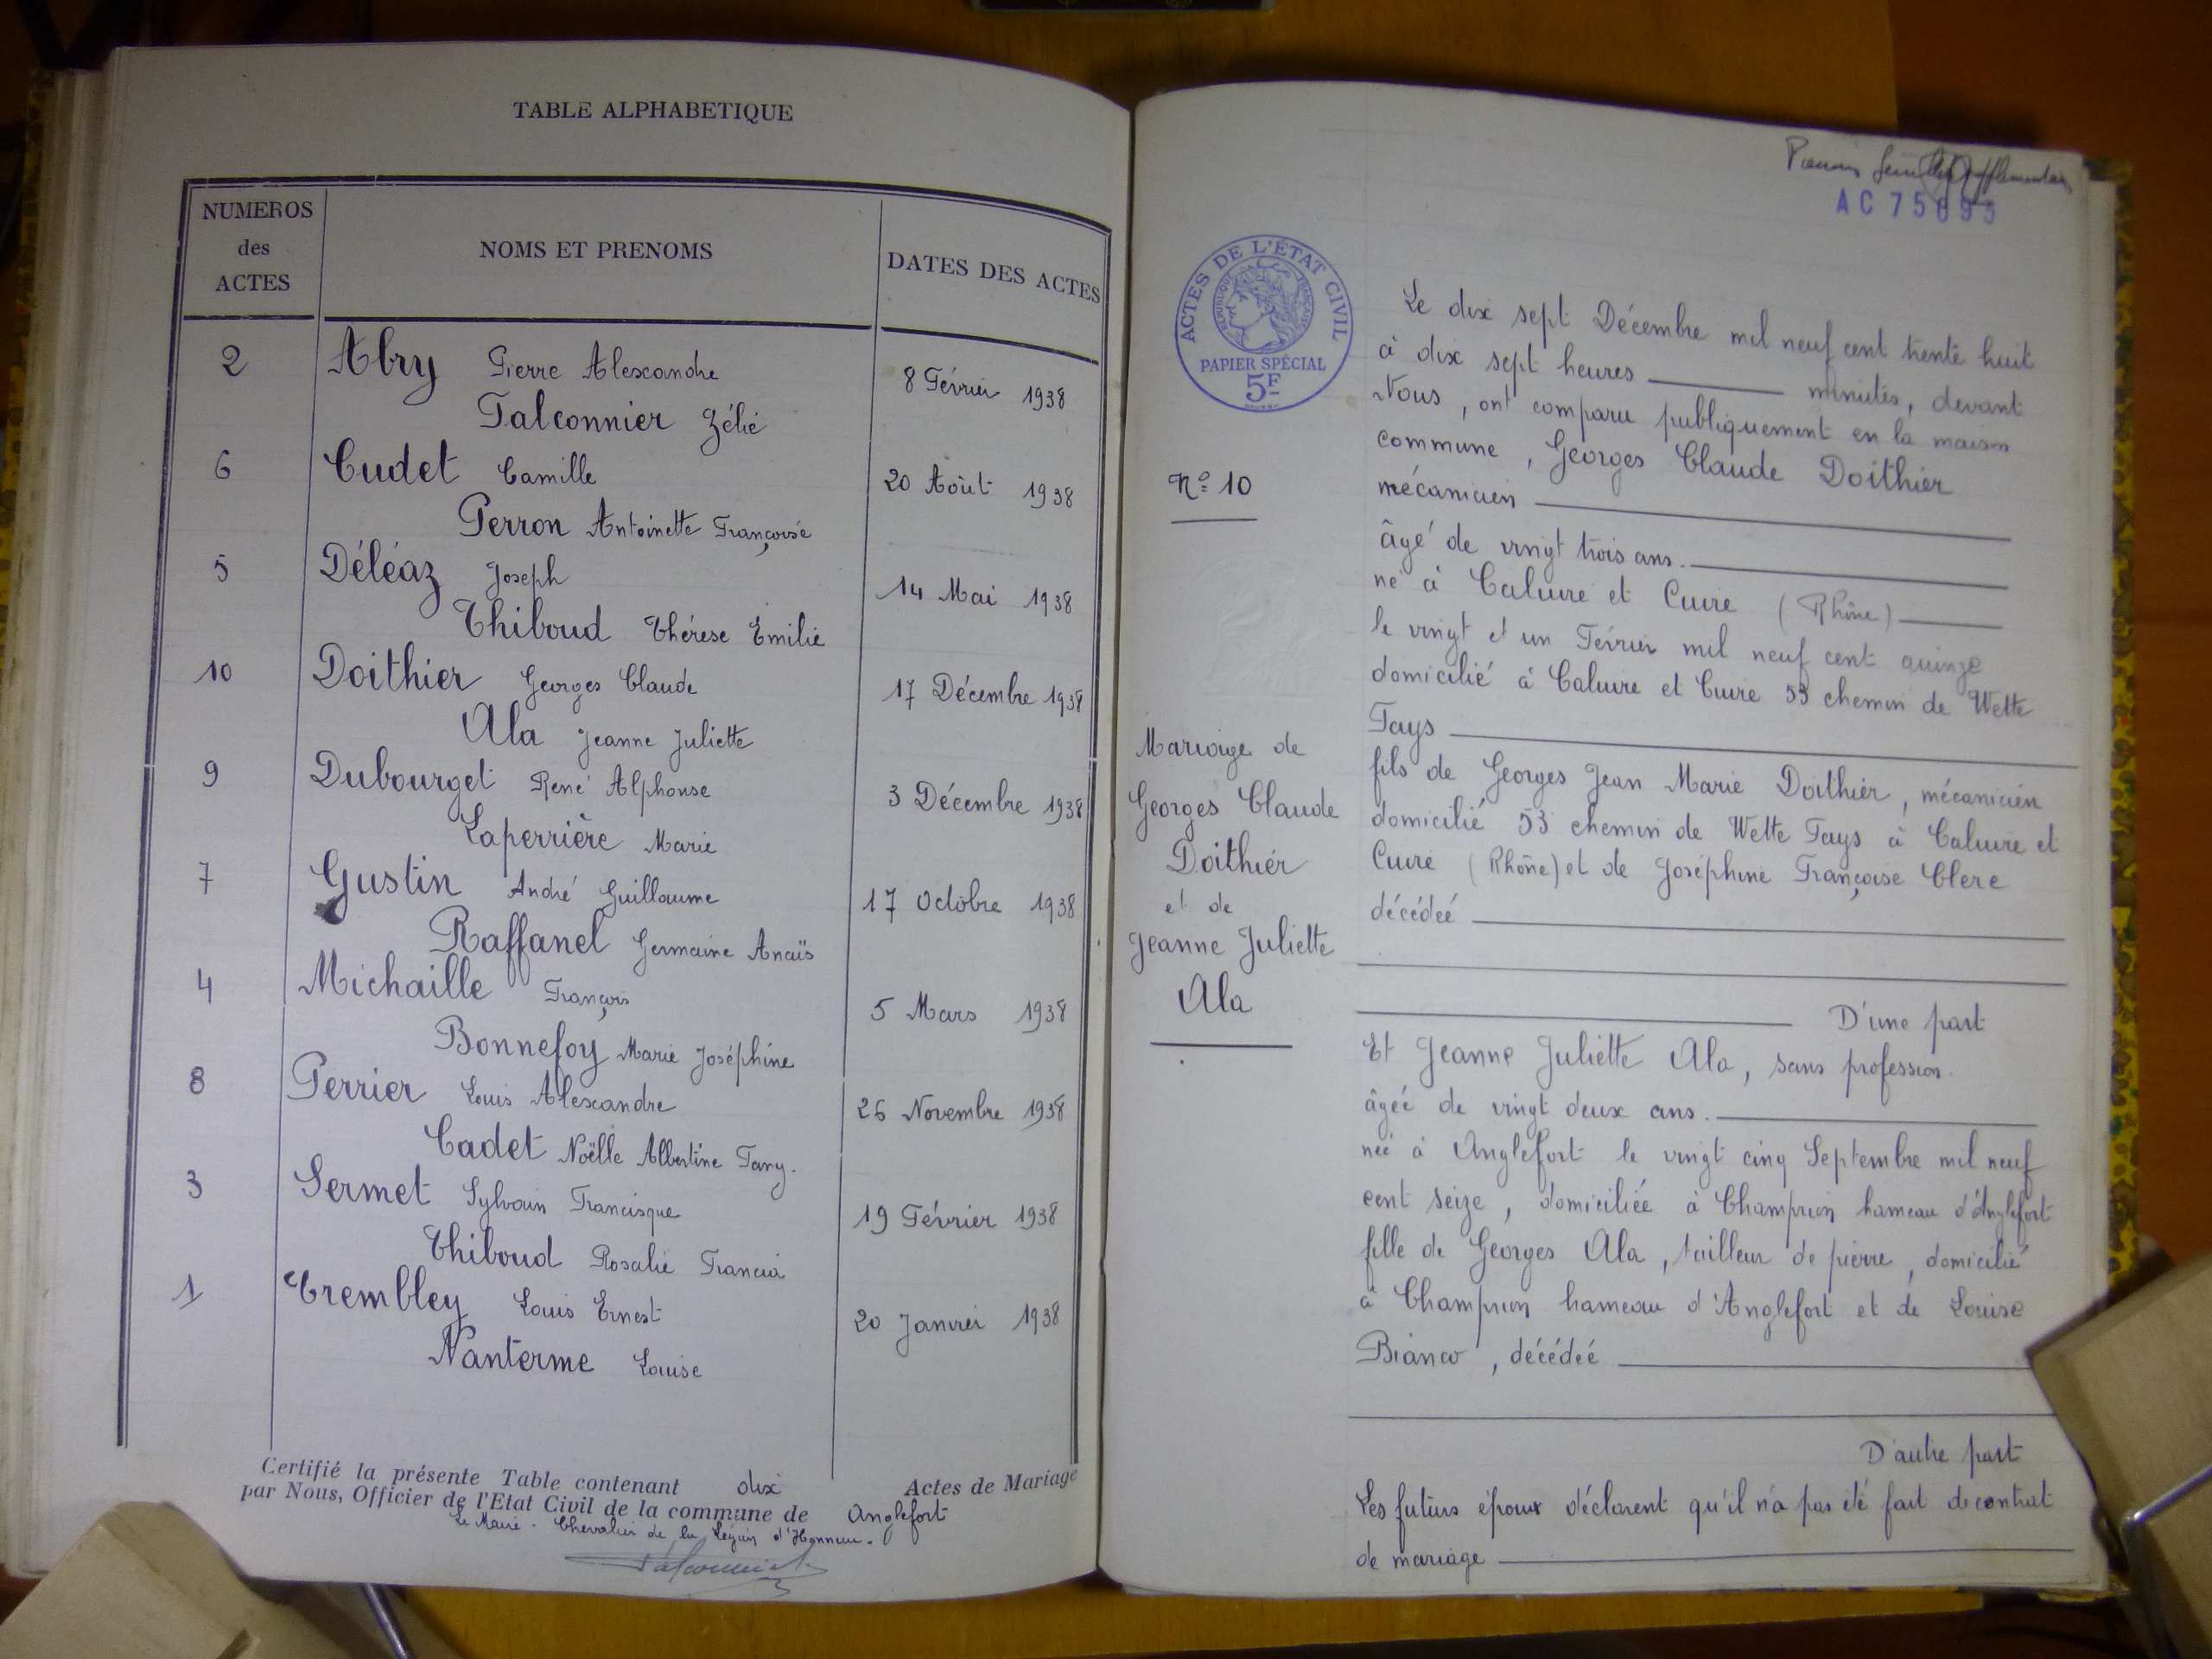 TABLE ALPHABETIQUE
NUMEROS
des
ACTES
NOMS ET PRENOMS
DATES DES ACTES
2 Abry Pierre Alexandre 8 Février 1938
Falconnier Zélie
6 Cudet Camille 20 Août 1938
Perron Antoinette Françoise
5 Déléaz Joseph 14 Mai 1938
Thiboud Thérèse Emilie
10 Doithier Georges Claude 17 Décembre 1938
Ala Jeanne Juliette
9 Dubourget René Alphonse 3 Décembre 1938
Laperrière Marie
7 Gustin André Guillaume 17 Octobre 1938
Raffanel Germaine Anaïs
4 Michaille François 5 Mars 1938
Bonnefoy Marie Joséphine
8 Perrier Louis Alexandre 26 Novembre 1938
Cadet Noëlle Albertine Fany.
3 Sermet Sylvain Francisque 19 Février 1938
Thiboud Rosalie Francia
1 Trembley Louis Ernest 20 Janvier 1938
Nanterme Louise
Certifié la présente Table contenant dix Actes de Mariage
par Nous, Officier de l'Etat Civil de la commune de Anglefort
Le Maire. Chevalier de la Légion d'Honneur.
AC 75693
ACTES DE L'ÉTAT CIVIL
RÉPUBLIQUE FRANÇAISE
PAPIER SPÉCIAL
5F
N° 10
Mariage de
Georges Claude
Doithier
et de
Jeanne Juliette
Ala
Le dix sept Décembre mil neuf cent trente huit
à dix sept heures minutes, devant
Nous, ont comparu publiquement en la maison
commune, Georges Claude Doithier
mécanicien
âgé de vingt trois ans.
né à Caluire et Cuire (Rhône)
le vingt et un Février mil neuf cent quinze
domicilié à Caluire et Cuire 53 chemin de Wette
Fays
fils de Georges Jean Marie Doithier, mécanicien
domicilié 53 chemin de Wette Fays à Caluire et
Cuire (Rhône) et de Joséphine Françoise Clerc
décédée
D'une part
Et Jeanne Juliette Ala, sans profession.
âgée de vingt deux ans.
née à Anglefort le vingt cinq Septembre mil neuf
cent seize, domiciliée à Champrion hameau d'Anglefort
fille de Georges Ala, tailleur de pierre, domicilié
à Champrion hameau d'Anglefort et de Louise
Bianco, décédée
D'autre part
Les futurs époux déclarent qu'il n'a pas été fait de contrat
de mariage